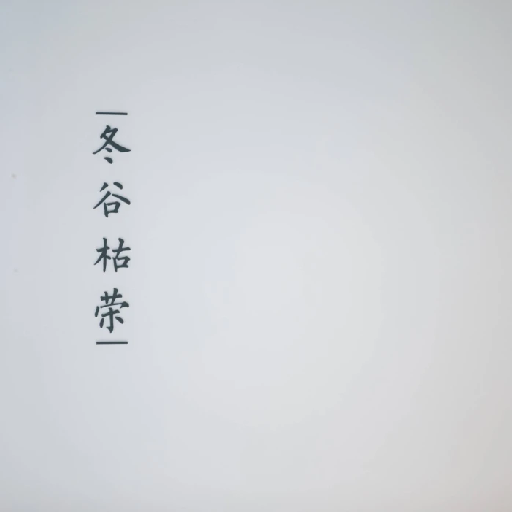 冬谷枯荣